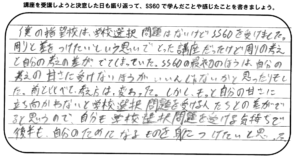 講座を受講しようと決意した日も振り返って、SS60で学んだことや感じたことを書きましょう。
僕の志望校は、学校選択問題ではないけどSS60を受けました。
周りと差をつけたいという思いでとった講座だったけど周りの考え
と自分の考えの差がでてしまっていた。SS60の最初のほうは、自分の
考えの甘さに受けないほうがいいんじゃないかと思ったりもした
前とくらべて考え方は、変わった。しかし、もっと自分の甘さに
立ち向かわないと学校選択問題を受ける人たちとの差がで
ると思うので、自分も学校選択問題を受ける気持ちで
後期も、自分のためになるものを身につけたいと思った。